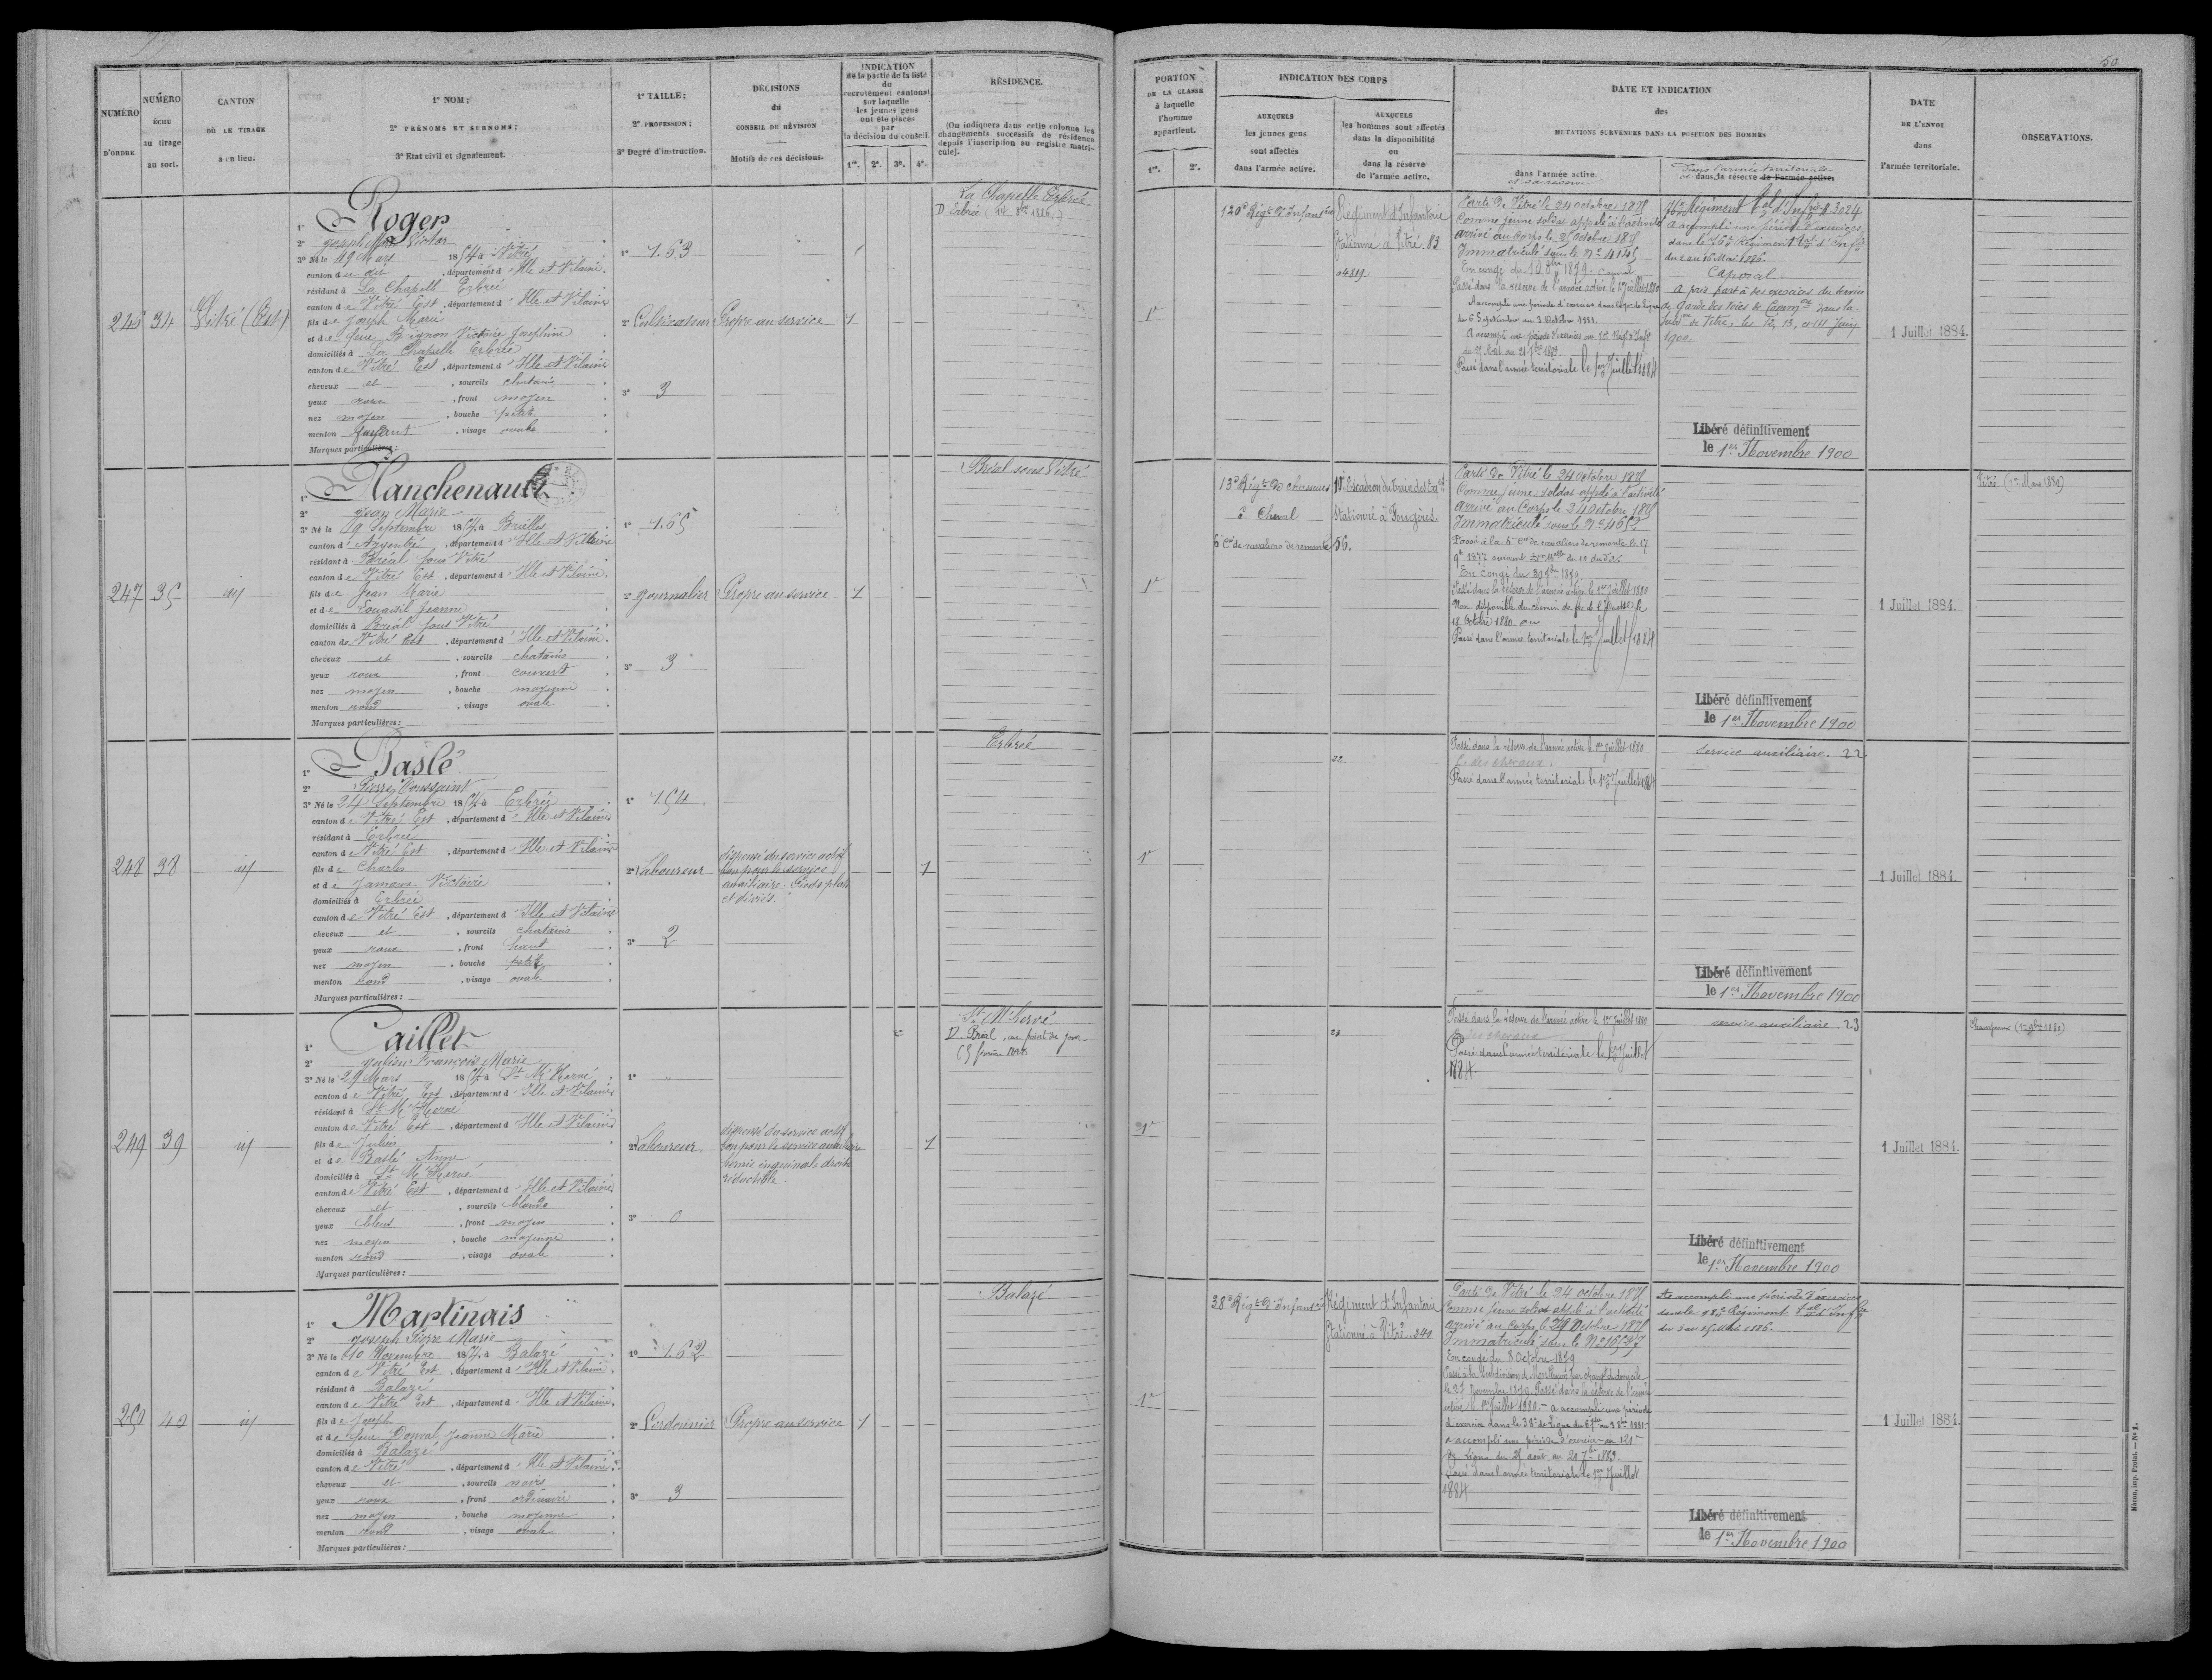 99
50
NUMÉRO
D'ORDRE.
NUMÉRO
ÉCHU
au tirage
au sort.
CANTON
OÙ LE TIRAGE
a eu lieu.
1° NOM;
2° PRÉNOMS ET SURNOMS;
3° Etat civil et signalement.
1° TAILLE;
2° PROFESSION;
3° Degré d'instruction.
DÉCISIONS
du
CONSEIL DE RÉVISION
Motifs de ces décisions.
INDICATION
de la partie de la liste
du
recrutement cantonal
sur laquelle
les jeunes gens
ont été placés
par
la décision du conseil.
1re. 2e. 3e. 4e.
RÉSIDENCE.
(On indiquera dans cette colonne les
changements successifs de résidence
depuis l'inscription au registre matri-
cule).
PORTION
DE LA CLASSE
à laquelle
l'homme
appartient.
1re. 2e.
INDICATION DES CORPS
AUXQUELS
les jeunes gens
sont affectés
dans l'armée active.
AUXQUELS
les hommes sont affectés
dans la disponibilité
ou
dans la réserve
de l'armée active.
DATE ET INDICATION
des
MUTATIONS SURVENUES DANS LA POSITION DES HOMMES
dans l'armée active.
et sa réserve
Dans l'armée territoriale
et dans la réserve de l'armée active.
DATE
DE L'ENVOI
dans
l'armée territoriale.
OBSERVATIONS.
246 34 Vitré (Est)
1° Roger
2° Joseph Marie Victor
3° Né le 19 Mars 1854 à Vitré
canton de dit, département d'Ille et Vilaine.
résidant à La Chapelle Erbrée
canton de Vitré Est, département d'Ille et Vilaine
fils de Joseph Marie
et de feue Bignon Victoire Joséphine
domiciliés à La Chapelle Erbrée
canton de Vitré Est, département d'Ille et Vilaine
cheveux et, sourcils chatains
yeux roux, front moyen
nez moyen, bouche petite
menton fuyant, visage ovale
Marques particulières:
1° 1.63
2° Cultivateur
3° 3
Propre au service
1
La Chapelle Erbrée
D Erbrée (14 8bre 1886.)
1re
120e Régt d'Infanterie
Régiment d'Infanterie
Stationné à Vitré. 83
Parti de Vitré le 24 octobre 1875
Comme jeune soldat appelé à l'activité
arrivé au Corps le 25 octobre 1875
Immatriculé sous le No 4145
Passé dans la réserve de l'armée active le 1er juillet 1880
A accompli une période d'exercices dans le
du 6 Septembre au 3 Octobre 1881.
A accompli une période d'exercices au
Passé dans l'armée territoriale le 1er Juillet 1884
76e Régiment d'Infrie 3024
A accompli une période d'exercices
dans le 76e Régiment d'Infie
du 2 au 16 Mai 1886.
Caporal
A pris part à des exercices du service
de Garde des Voies de Common dans la
Subdon de Vitré, les 12, 13, et 14 Juin
1900.
Libéré définitivement
le 1er Novembre 1900
1 Juillet 1884.
247 35 id
1° Planchenault
2° Jean Marie
3° Né le 9 Septembre 1854 à Brielles
canton d'Argentré, département d'Ille et Vilaine
résidant à Bréal sous Vitré
canton de Vitré Est, département d'Ille et Vilaine.
fils de Jean Marie
et de Louaisil Jeanne
domiciliés à Bréal sous Vitré
canton de Vitré Est, département d'Ille et Vilaine.
cheveux et, sourcils chatains
yeux roux, front couvert
nez moyen, bouche moyenne
menton rond, visage ovale
Marques particulières:
1° 1.65
2° Journalier
3° 3
Propre au service
1
Bréal sous Vitré
1re
13e Régt de chasseurs
à Cheval
6e Cie de cavaliers de remonte
10e Escadron du train des Eqes
Stationné à Fougères.
56.
Parti de Vitré le 24 octobre 1875
Comme jeune soldat appelé à l'activité
arrivé au Corps le 24 octobre 1875
Immatriculé sous le No 4652
Passé à la 6e Cie de cavaliers de remonte le 17
Passé dans la réserve de l'armée active le 1er juillet 1880
Non disponible du chemin de fer de l'Ouest
18 Octobre 1880.
Passé dans l'armée territoriale le 1er Juillet 1884
Libéré définitivement
le 1er Novembre 1900
1 Juillet 1884.
Vitré (1er Mars 1882)
248 38 id
1° Baslé
2° Pierre Toussaint
3° Né le 24 Septembre 1854 à Erbrée
canton de Vitré Est, département d'Ille et Vilaine
résidant à Erbrée
canton de Vitré Est, département d'Ille et Vilaine
fils de Charles
et de Jamoux Victoire
domiciliés à Erbrée
canton de Vitré Est, département d'Ille et Vilaine
cheveux et, sourcils chatains
yeux roux, front haut
nez moyen, bouche petite
menton rond, visage ovale
Marques particulières:
1° 1.54
2° Laboureur
3° 2
dispensé du service actif
bon pour le service
auxiliaire. Pieds plats
et déviés.
1
Erbrée
1re
22
Passé dans la réserve de l'armée active le 1er juillet 1880
Passé dans l'armée territoriale le 1er Juillet 1884
service auxiliaire. 22
Libéré définitivement
le 1er Novembre 1900
1 Juillet 1884.
249 39 id
1° Caillet
2° Julien François Marie
3° Né le 29 Mars 1854 à St M'Hervé
canton de Vitré Est, département d'Ille et Vilaine
résidant à St M'Hervé
canton de Vitré Est, département d'Ille et Vilaine
fils de Julien
et de Baslé Anne
domiciliés à St M'Hervé
canton de Vitré Est, département d'Ille et Vilaine
cheveux et, sourcils blonds
yeux bleus, front moyen
nez moyen, bouche moyenne
menton rond, visage ovale
Marques particulières:
1° "
2° Laboureur
3° 0
dispensé du service actif
bon pour le service auxiliaire
hernie inguinale droite
réductible.
1
St M'hervé
D. Bréal, au point du jour
1re
23
Passé dans la réserve de l'armée active le 1er juillet 1880
Passé dans l'armée territoriale le 1er juillet
1884.
service auxiliaire 23
Libéré définitivement
le 1er Novembre 1900
1 Juillet 1884.
250 40 id
1° Martinais
2° Joseph Pierre Marie
3° Né le 10 Novembre 1854 à Balazé
canton de Vitré Est, département d'Ille et Vilaine
résidant à Balazé
canton de Vitré Est, département d'Ille et Vilaine.
fils de Joseph
et de feue Dorval Jeanne Marie
domiciliés à Balazé
canton de Vitré, département d'Ille et Vilaine.
cheveux et, sourcils noirs
yeux roux, front ordinaire
nez moyen, bouche moyenne
menton rond, visage ovale
Marques particulières:
1° 1.62
2° Cordonnier
3° 3
Propre au service
1
Balazé
1re
38e Régt d'Infanterie
Régiment d'Infanterie
Stationné à Vitré. 240
Parti de Vitré le 24 octobre 1875
Comme jeune soldat appelé à l'activité
arrivé au Corps le 29 Octobre 1875
Immatriculé sous le No
En congé du 8 Octobre 1879
le 27 Novembre 1879. Passé dans la réserve de l'armée
active le 1er Juillet 1880 - a accompli une période
d'exercice dans le 38e de Ligne
a accompli une période d'exercice au 121e
de Ligne du 25 août au 21 7bre 1883.
Passé dans l'armée territoriale le 1er Juillet
1884
A accompli une période d'exercices
Libéré définitivement
le 1er Novembre 1900
1 Juillet 1884.